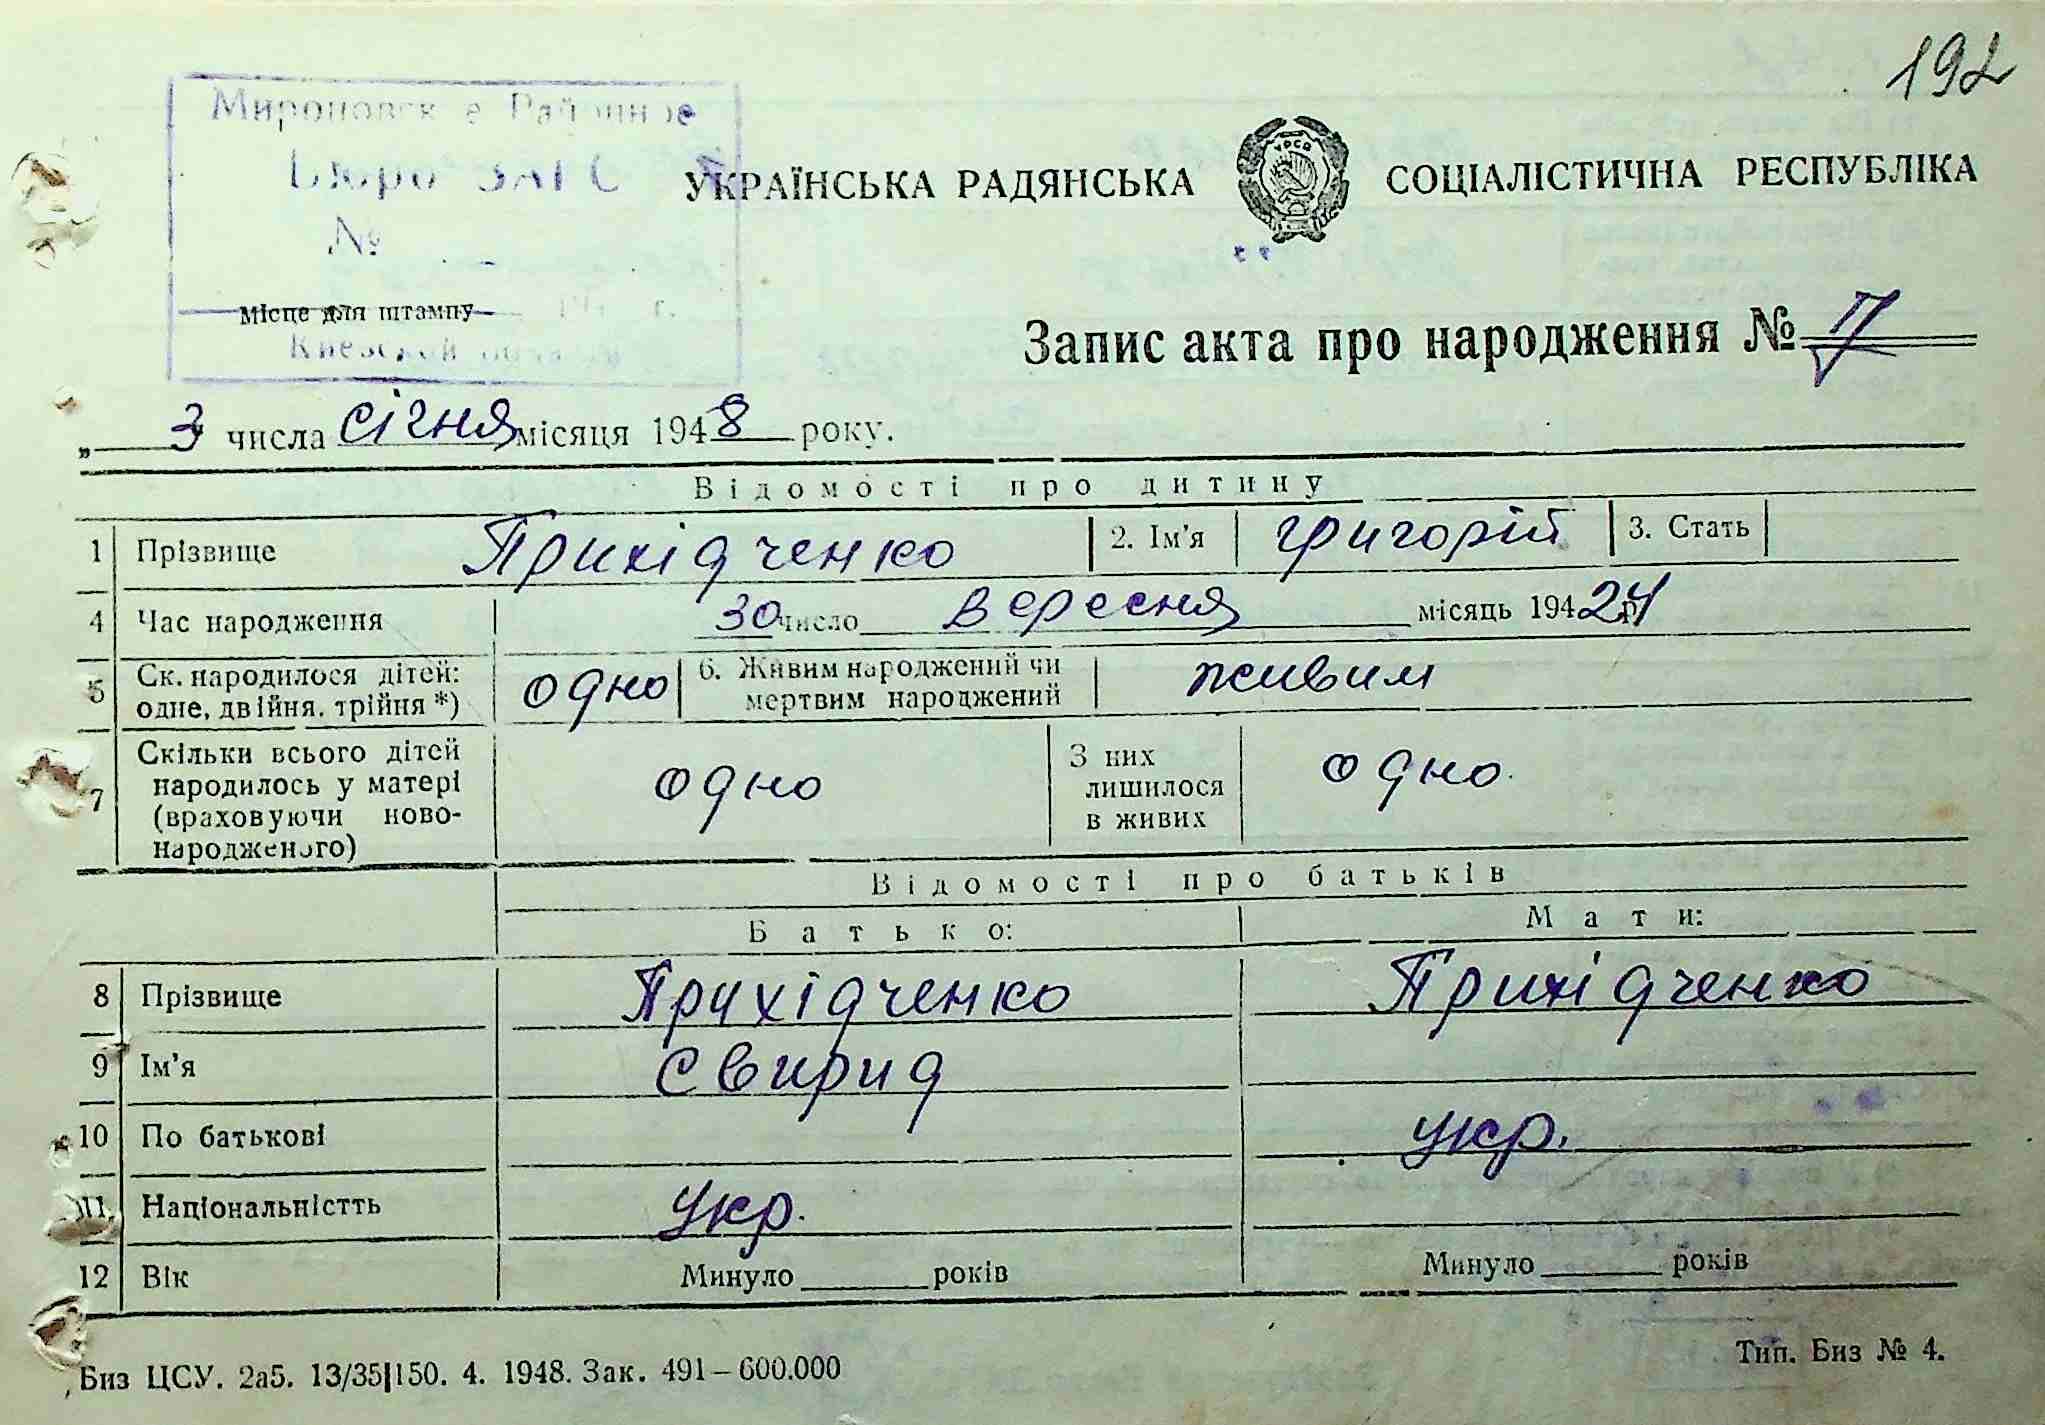 192
Мироновск е Районное
Бюро ЗАГС
№
Місце для штампу
Киевской области
УКРАЇНСЬКА РАДЯНСЬКА СОЦІАЛІСТИЧНА РЕСПУБЛІКА
УРСР
Запис акта про народження № 7
„ 3 " числа січня місяця 1948 року.
Відомості про дитину
1 Прізвище Прихідченко 2. Ім'я григорій 3. Стать
4 Час народження 30 число вересня місяць 194 24 р
5 Ск. народилося дітей: одне, двійня, трійня *) одно 6. Живим народжений чи мертвим народжений живим
7 Скільки всього дітей народилось у матері (враховуючи ново-народженого) одно З них лишилося в живих одно.
Відомості про батьків
Батько: Мати:
8 Прізвище Прихідченко Прихідченко
9 Ім'я Свирид
10 По батькові укр.
11. Національністть укр.
12 Вік Минуло років Минуло років
Биз ЦСУ. 2а5. 13/35|150. 4. 1948. Зак. 491–600.000 Тип. Биз № 4.